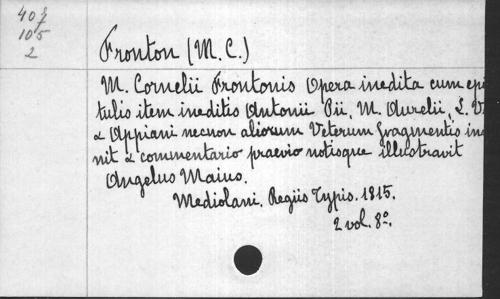 408
105
2
Fronton (M. C.)
M. Cornelii Frontonis Opera inedita cum epis
tulis item ineditis Antonii Pii, M. Aurelii, L. V
& Appiani necnon aliorum Veterum fragmentis in
nit & commentario praevio notisque illustravit
Angelus Maius.
Mediolani. Regiis Typis. 1815.
2 vol. 8º.